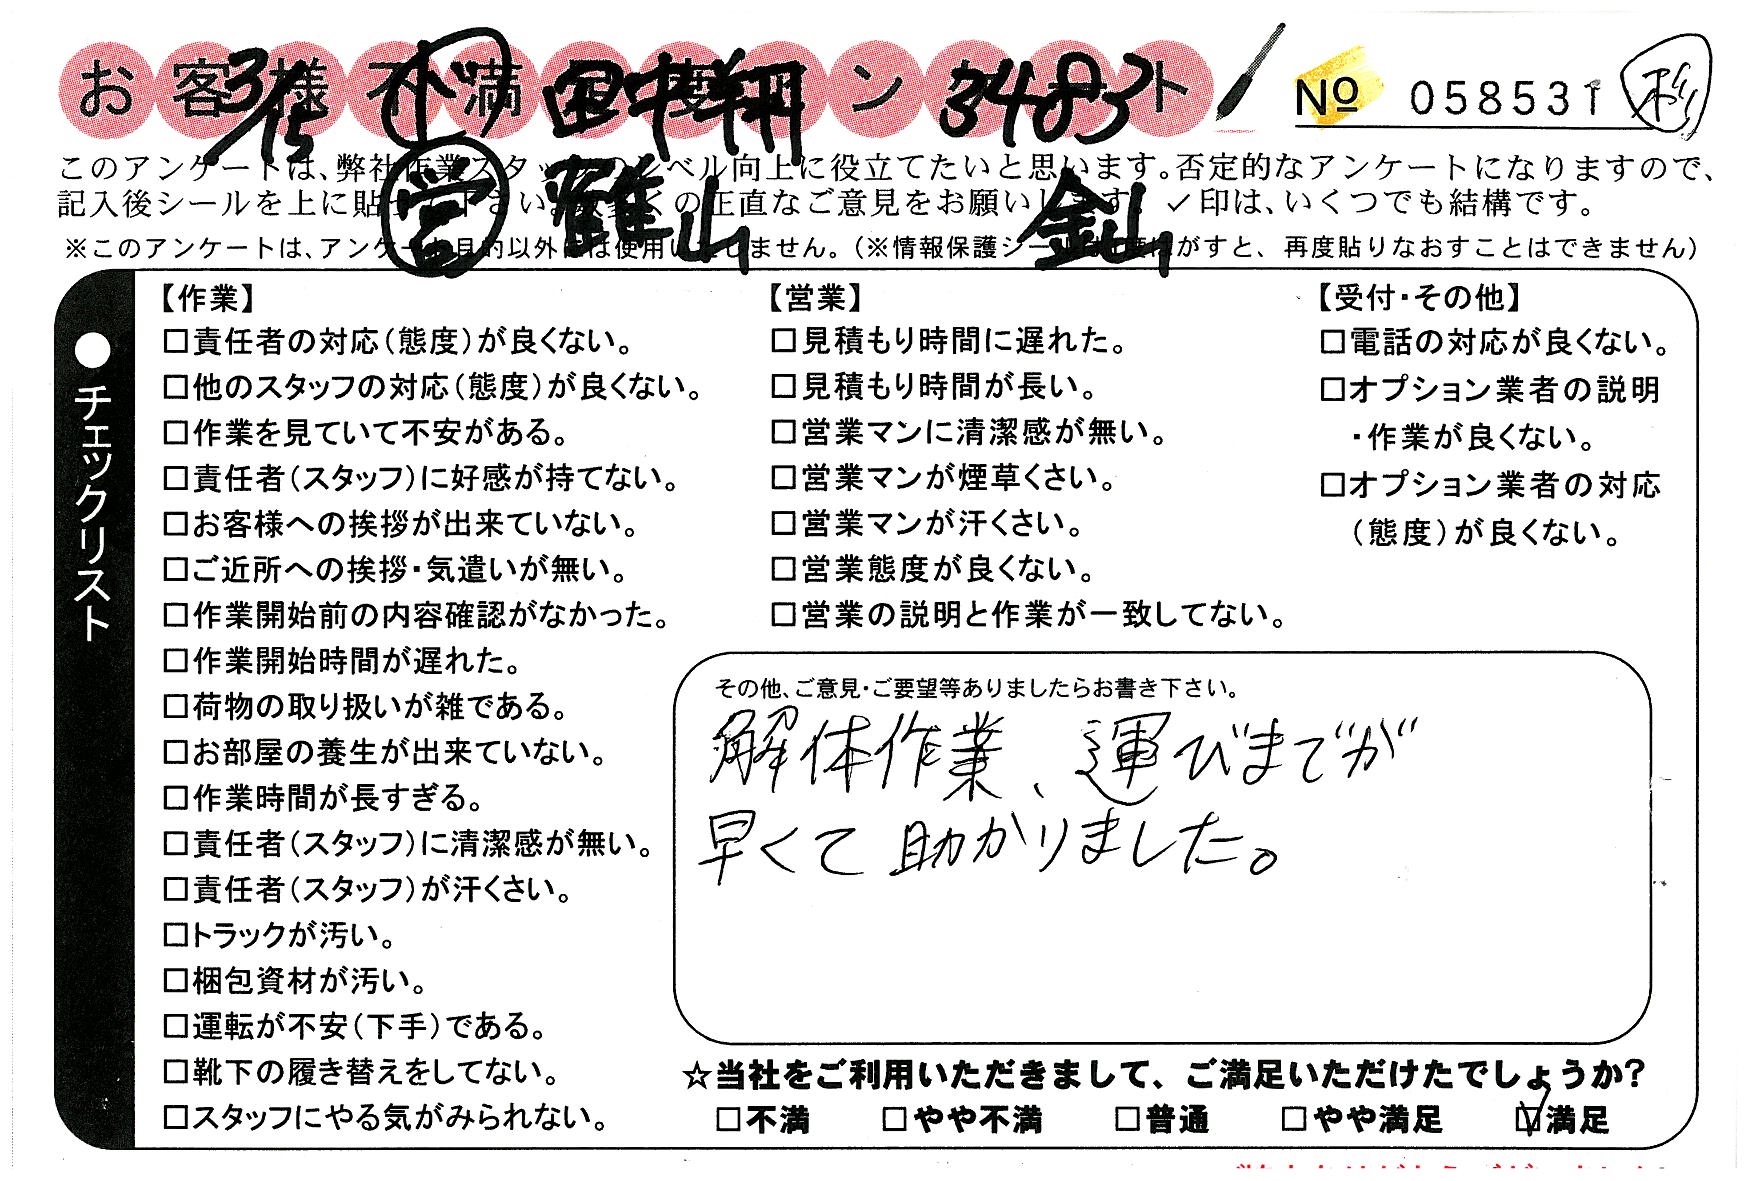 お客様不満足度アンケート
3/15 下 田中翔 3483
№ 058531 杉
営 難山 金山
このアンケートは、弊社作業スタッフのレベル向上に役立てたいと思います。否定的なアンケートになりますので、
記入後シールを上に貼って下さい。数多くの正直なご意見をお願いします。✓印は、いくつでも結構です。
※このアンケートは、アンケート目的以外には使用いたしません。(※情報保護シールは1度はがすと、再度貼りなおすことはできません)
●チェックリスト
【作業】
□責任者の対応(態度)が良くない。
□他のスタッフの対応(態度)が良くない。
□作業を見ていて不安がある。
□責任者(スタッフ)に好感が持てない。
□お客様への挨拶が出来ていない。
□ご近所への挨拶・気遣いが無い。
□作業開始前の内容確認がなかった。
□作業開始時間が遅れた。
□荷物の取り扱いが雑である。
□お部屋の養生が出来ていない。
□作業時間が長すぎる。
□責任者(スタッフ)に清潔感が無い。
□責任者(スタッフ)が汗くさい。
□トラックが汚い。
□梱包資材が汚い。
□運転が不安(下手)である。
□靴下の履き替えをしてない。
□スタッフにやる気がみられない。
【営業】
□見積もり時間に遅れた。
□見積もり時間が長い。
□営業マンに清潔感が無い。
□営業マンが煙草くさい。
□営業マンが汗くさい。
□営業態度が良くない。
□営業の説明と作業が一致してない。
【受付・その他】
□電話の対応が良くない。
□オプション業者の説明
・作業が良くない。
□オプション業者の対応
(態度)が良くない。
その他、ご意見・ご要望等ありましたらお書き下さい。
解体作業、運びまでが
早くて助かりました。
☆当社をご利用いただきまして、ご満足いただけたでしょうか?
□不満 □やや不満 □普通 □やや満足 ☑満足